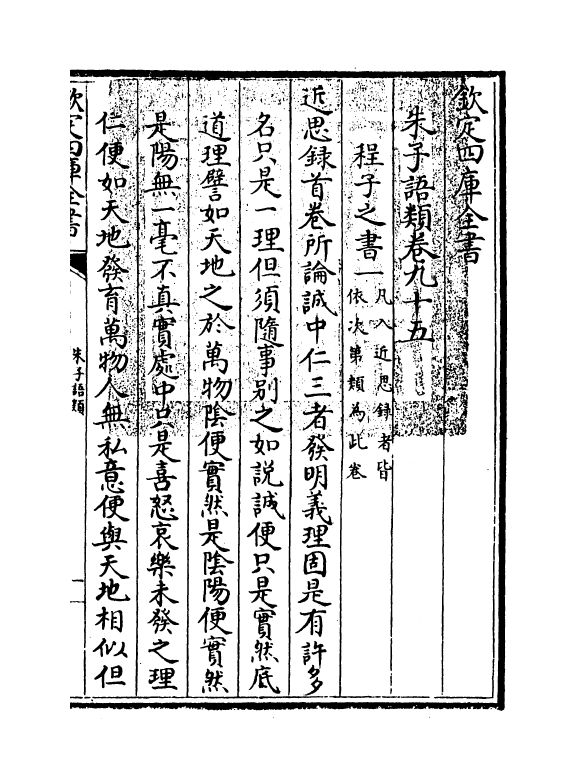 欽定四庫全書
朱子語類卷九十五
程子之書一
凡入近思録者皆
依次第類為此卷
近思録首卷所論誠中仁三者發明義理固是有許多
名只是一理但須隨事别之如説誠便只是實然底
道理譬如天地之於萬物陰便實然是陰陽便實然
是陽無一毫不真實處中只是喜怒哀樂未發之理
仁便如天地發育萬物人無私意便與天地相似但
欽定四庫全書
朱子語類
一